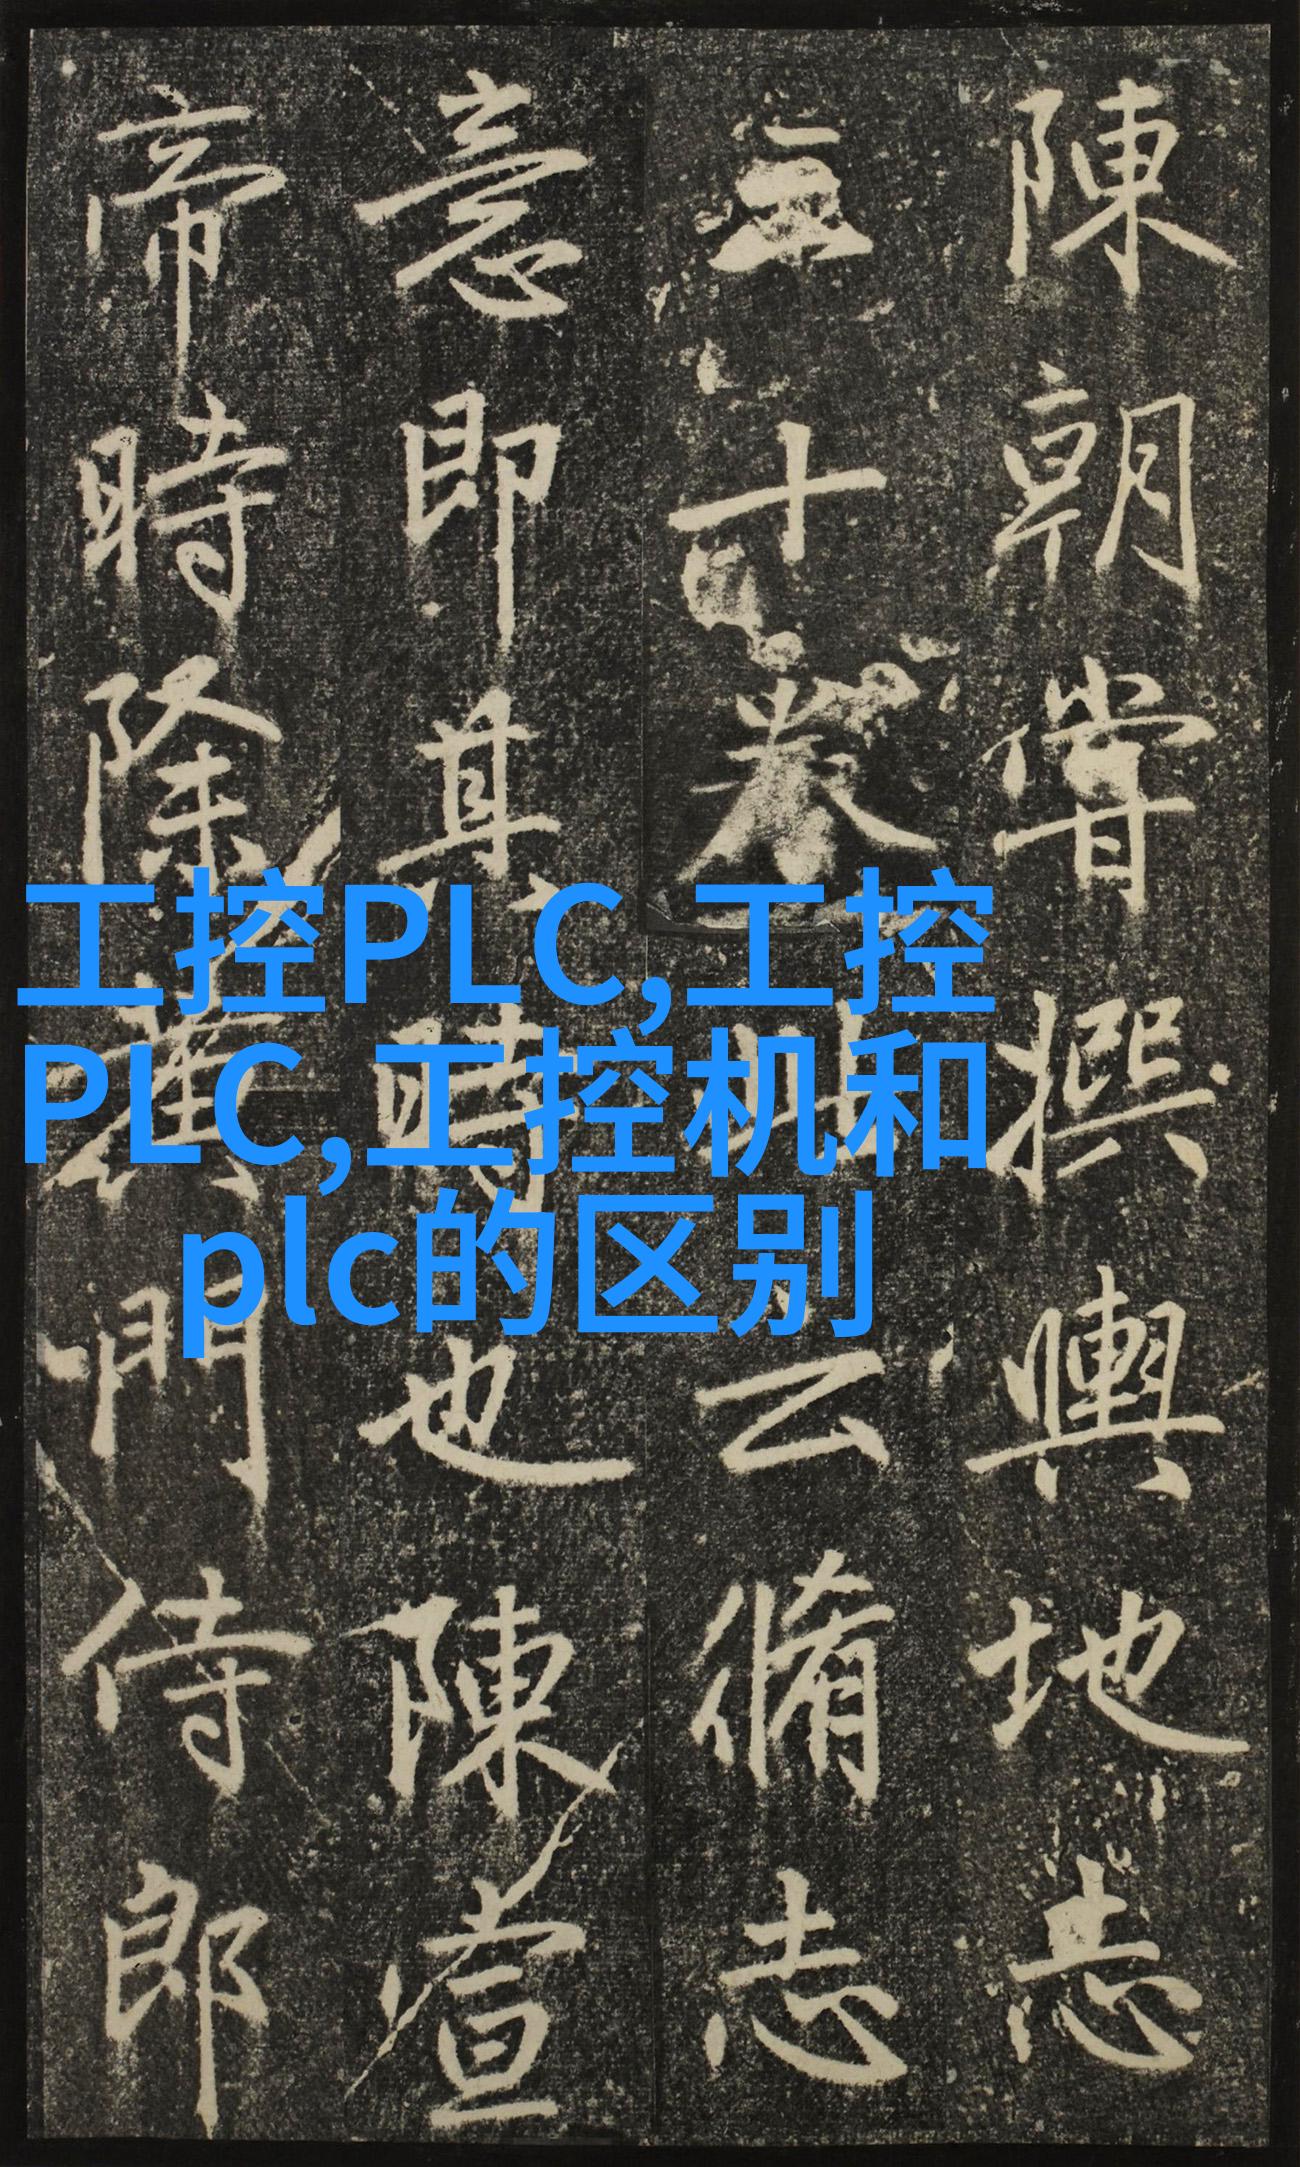 陳朝嘗撰輿地志
三十卷此云脩志
意即其時也陳宣
帝時除黃門侍郎
工控PLC,工控
PLC,工控机和
plc的区别